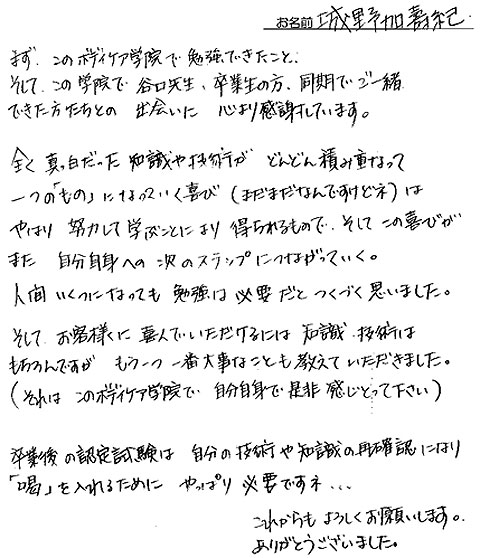 お名前 城野加寿紀
まず、このボディケア学院で勉強できたこと、
そして、この学院で 谷口先生、卒業生の方、同期でご一緒
できた方たちとの 出会いに 心より感謝しています。
全く 真っ白だった 知識や技術が どんどん積み重なって
一つの「もの」になっていく喜び(まだまだなんですけどネ)は
やはり 努力して学ぶことにより 得られるもので、そして この喜びが
また 自分自身への 次のステップにつながっていく。
人間 いくつになっても 勉強は 必要だと つくづく思いました。
そして お客様に 喜んでいただけるには 知識、技術は
もちろんですが もう一つ 一番大事なことも 教えていただきました。
(それは このボディケア学院で 自分自身で 是非 感じとって下さい)
卒業後の認定試験は 自分の技術や知識の再確認になり
「喝」を入れるために やっぱり 必要ですネ...
これからも よろしくお願いします。
ありがとうございました。